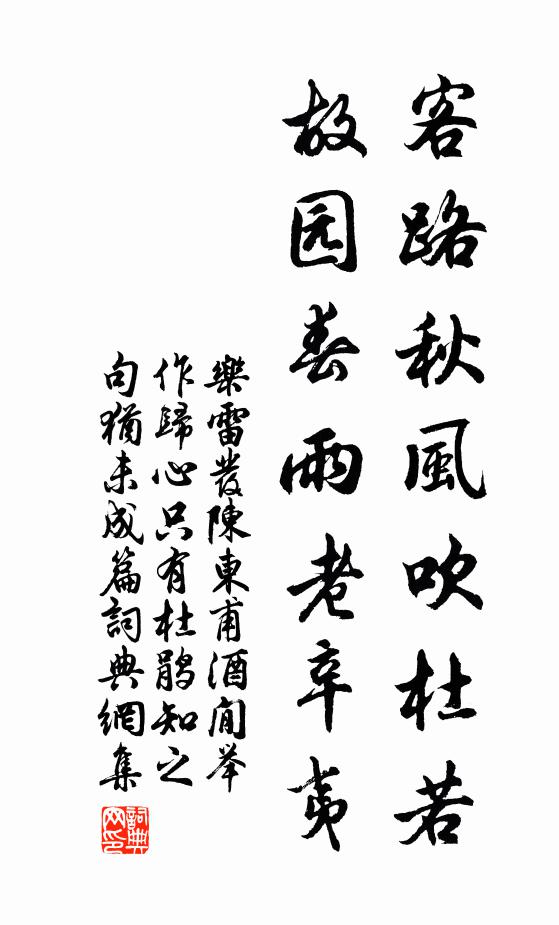 客路秋風吹杜若
故园春雨老辛夷
樂雷發陳東甫酒間举
作歸心只有杜鹃知之
句猶未成篇詞典網集
詞典网印